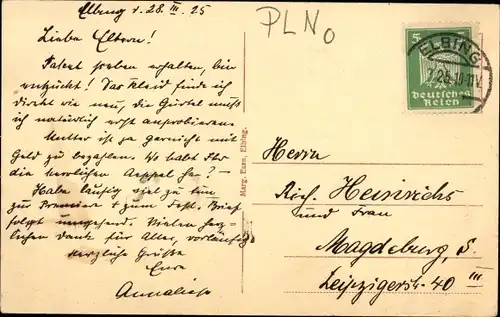 Elbing d. 28. III. 25
Liebe Eltern!
Paket soeben erhalten, bin
entzückt! Das Kleid finde ich
direkt wie neu, die Gürtel muß
ich natürlich erst anprobieren.
Mutter ist ja garnicht mit
Geld zu bezahlen. Wo habt Ihr
die herrlichen Aepfel her? –
Habe läufig viel zu tun
zur Premiere + zum Fest. Brief
folgt umgehend. Vielen herz-
lichen Dank für Alles, vorläufig
herzliche Grüße
Eure
Anneliese
PLNo
Marg. Fuss, Elbing.
5
Deutsches
Reich
ELBING
25.10-11V.
Herrn
Rich. Heinrichs
und Frau
Magdeburg, S.
Leipzigerstr 40 III